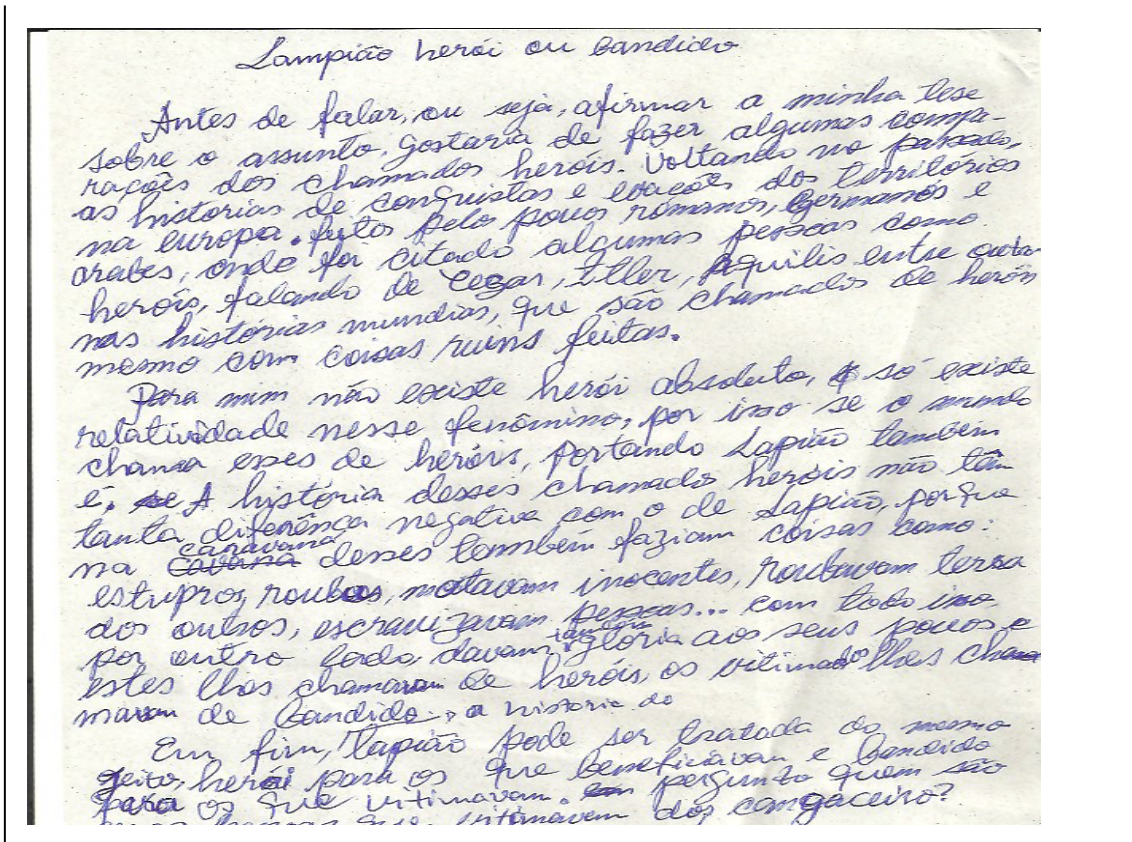 Lampião herói ou bandido
Antes de falar, ou seja, afirmar a minha tese
sobre o assunto. gostaria de fazer algumas compa-
rações dos chamados heróis. Voltando no passado,
as historias de conquistas e evacões dos territórios
na europa. feitos pelo povos romanos, Germanos e
arabes, onde foi citado algumas pessoas como
heróis, falando de Cezar, Itler, Aquilis entre outros
nas histórias mundias, que são chamados de heróis
mesmo com coisas ruins feitas.
Para mim não existe herói absoluto, só existe
relatividade nesse fenômino, por isso se o mundo
chama esses de heróis, portando Lapião também
é. A história desses chamados heróis não têm
tanta diferênça negativa com o de Lapião, porque
na caravana desses também faziam coisas como:
estupros, roubos, matavam inocentes, roubavam terra
dos outros, escravizavam pessoas... com todo isso
por outro lado, davam glória aos seus povos, e
estes lhos chamavam de heróis, os vitimados lhes cha
mavam de bandido., a historia do
Em fim, lapião pode ser tratada do mesmo
jeito, herói para os que beneficiavam e bandido
para os que vitimavam. pergunto quem são
vitimavam dos congaceiro?